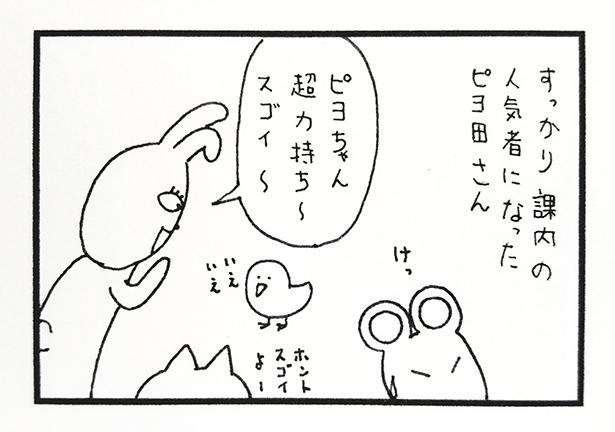 すっかり課内の
人気者になった
ピヨ田さん
けっ
ピヨちゃん
超力持ち〜
スゴイ〜
いえ
いえ
ホント
スゴイ
よー